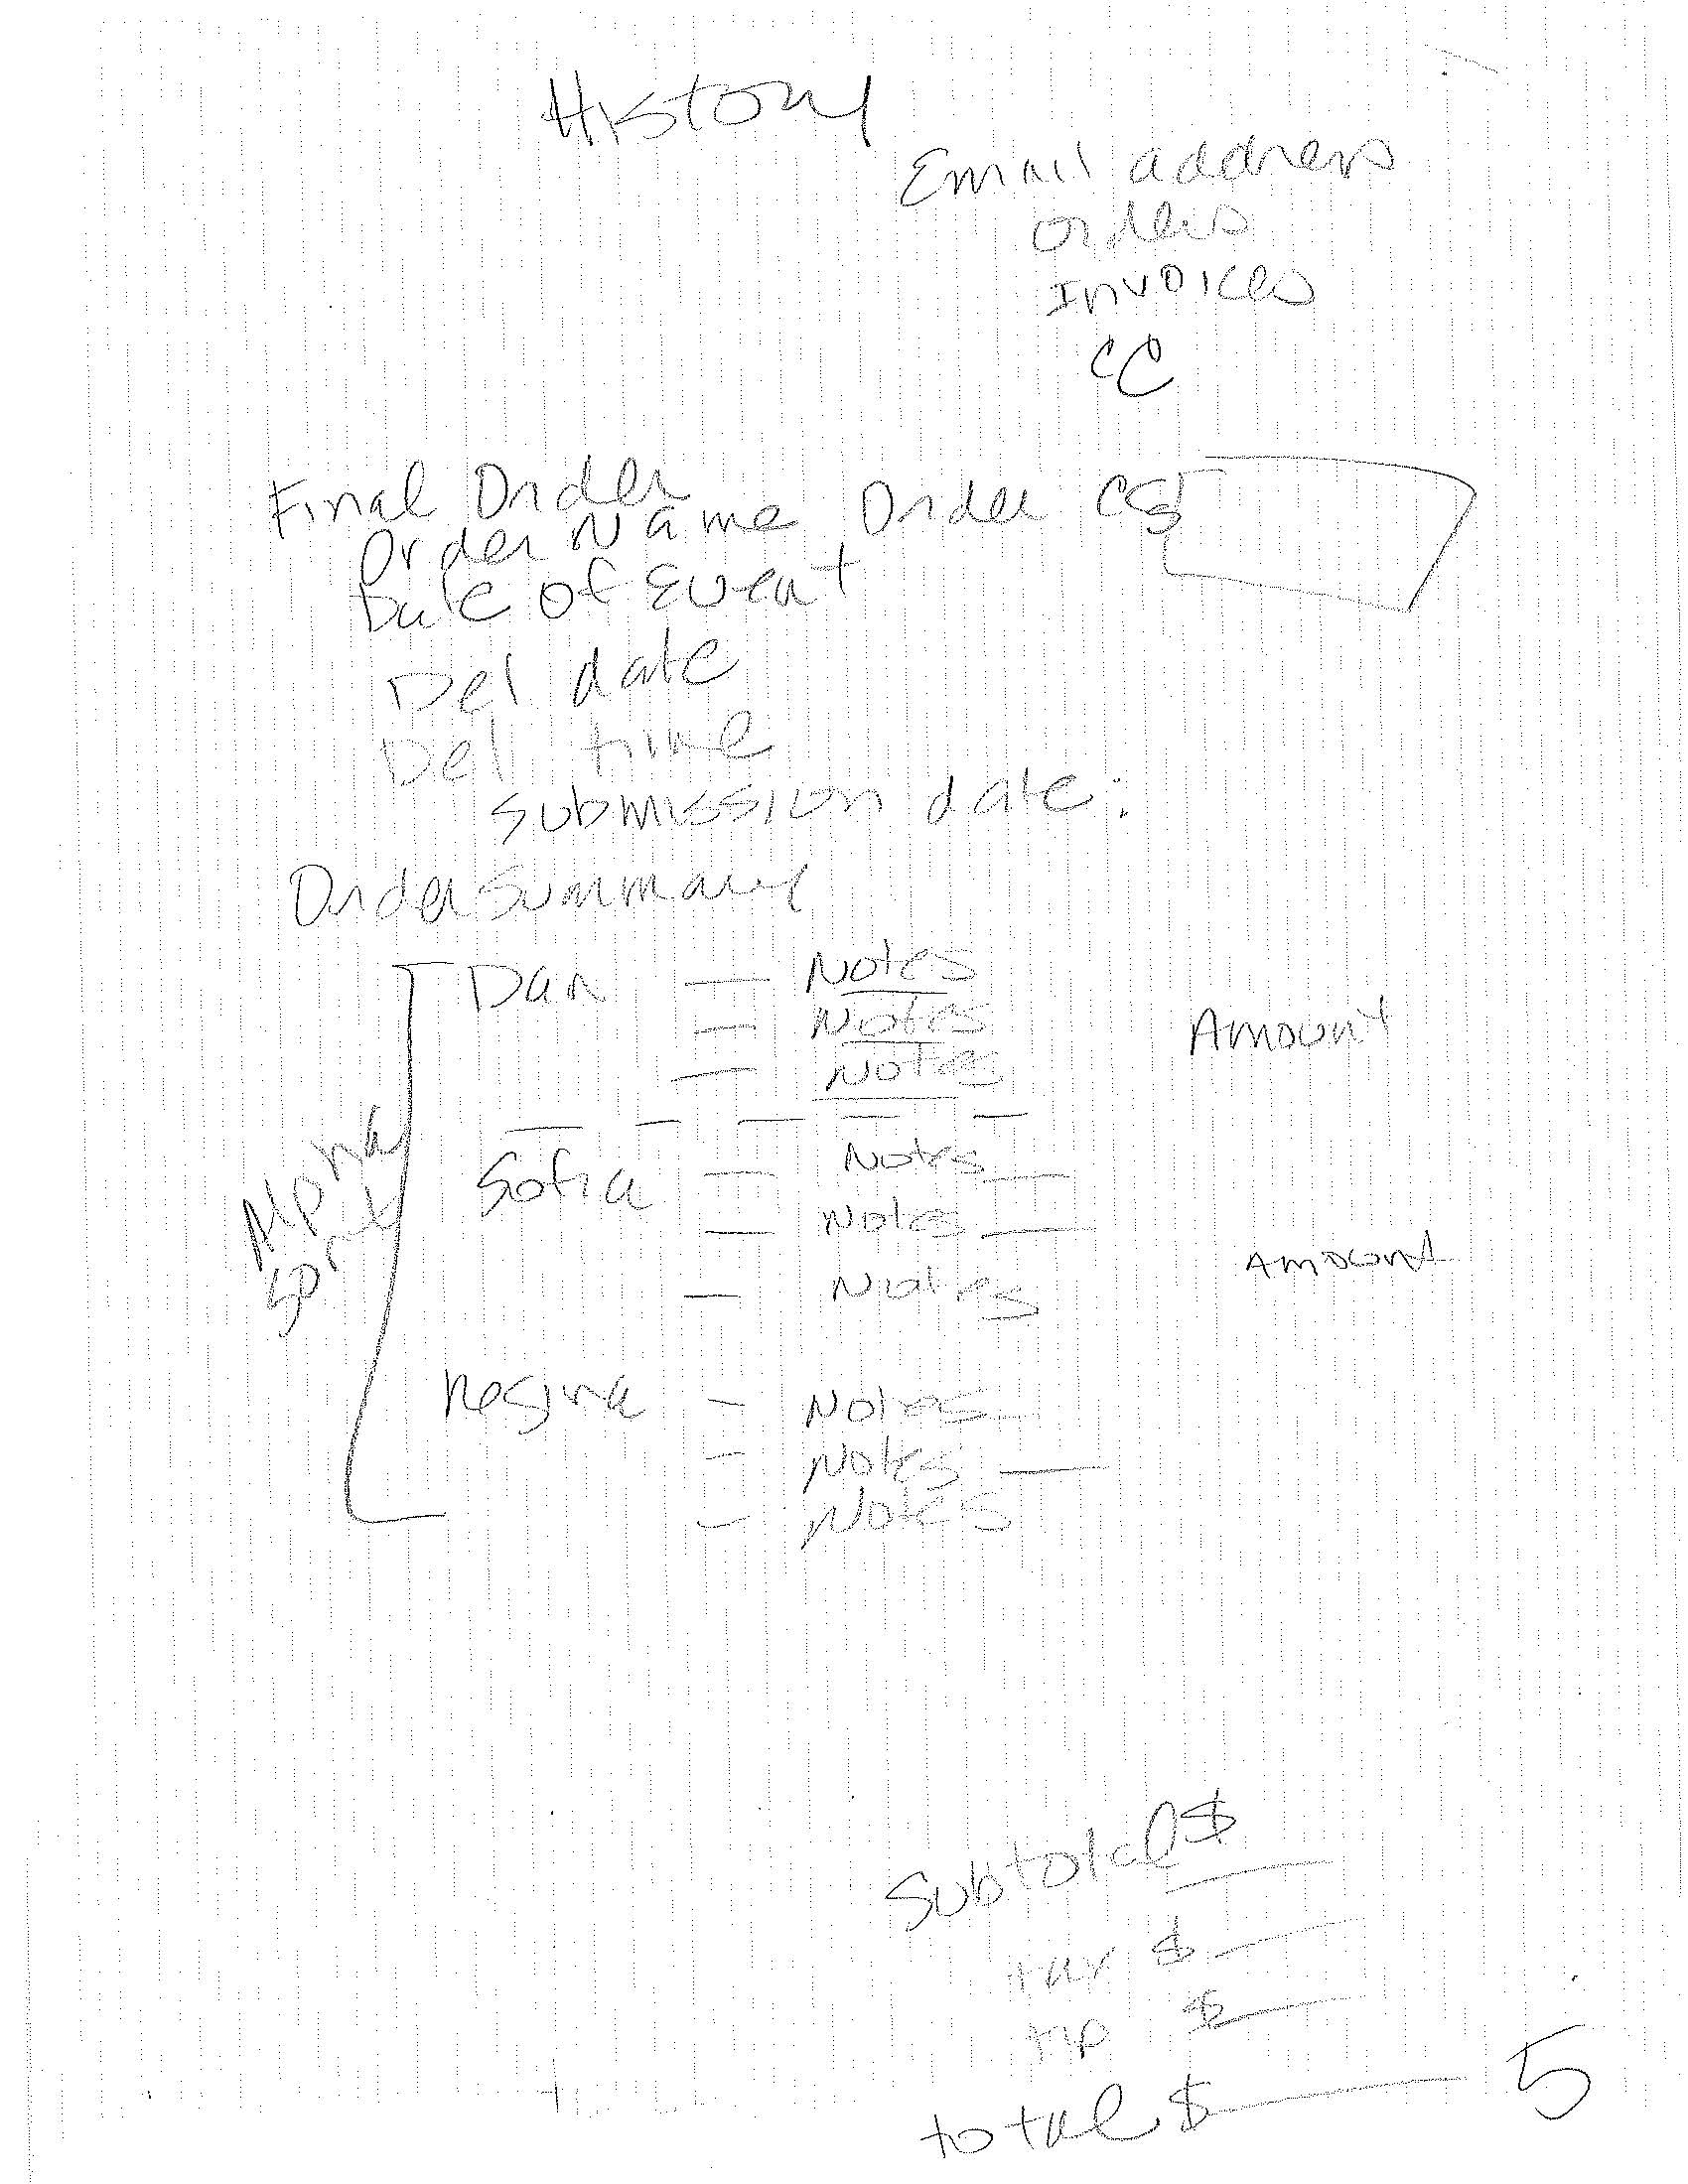 History
Email address
orders
Invoices
CC
Final Order
Order Name Order CCs
Date of Event
Del date
Del time
Submission date:
Order Summary
Dan — Notes
— Notes Amount
— Notes
Alpha
sort
Sofia — Notes
— Notes
— Notes Amount
Regina - Notes
- Notes
- Notes
Subtotal $
tax $
tip $
total $ 5